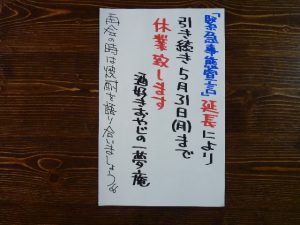 「緊急事態宣言」延長により
引き続き5月31日(月)まで
休業致します
酒好きおやじの一夢庵
再会の時は焼酎を譲り合いましょう